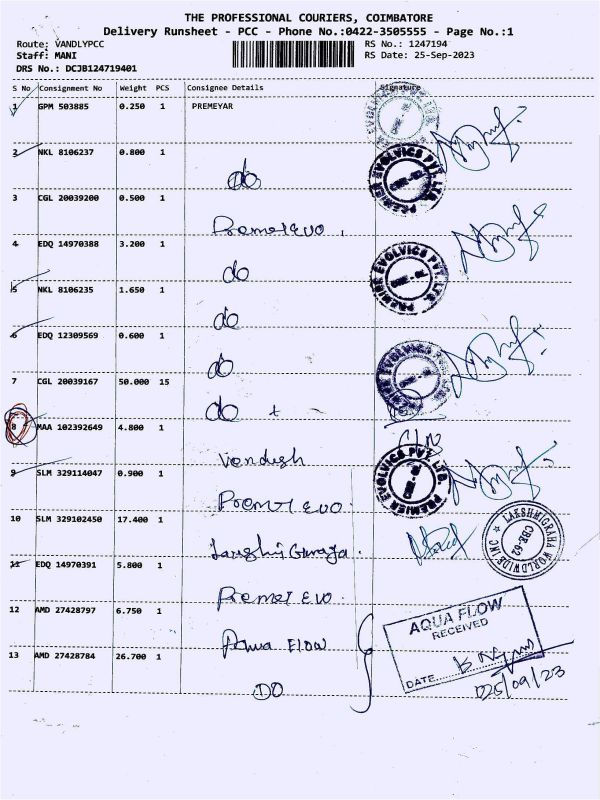 THE PROFESSIONAL COURIERS, COIMBATORE
Delivery Runsheet - PCC - Phone No.:0422-3505555 - Page No.:1
Route: VANDLYPCC RS No.: 1247194
Staff: MANI RS Date: 25-Sep-2023
DRS No.: DCJB124719401
S No Consignment No Weight PCS Consignee Details Signature
1 GPM 503885 0.250 1 PREMEYAR
2 NKL 8106237 0.800 1
do
3 CGL 20039200 0.500 1
Premel EVO.
4 EDQ 14970388 3.200 1
do
5 NKL 8106235 1.650 1
do
6 EDQ 12309569 0.600 1
do
7 CGL 20039167 50.000 15
do
8 MAA 102392649 4.800 1
9 SLM 329114047 0.900 1
EVO
10 SLM 329102450 17.400 1
11 EDQ 14970391 5.800 1
EVO
12 AMD 27428797 6.750 1
Aqua Flow
13 AMD 27428784 26.700 1
DO
PREMIER EVOLVICS PVT. LTD.
CBE-62
PREMIER EVOLVICS PVT. LTD.
PREMIER EVOLVICS PVT. LTD.
PREMIER EVOLVICS PVT. LTD.
LAKSHMIGRAHA WORLDWIDE INC
CBE-62
AQUA FLOW
RECEIVED
DATE
25/09/23